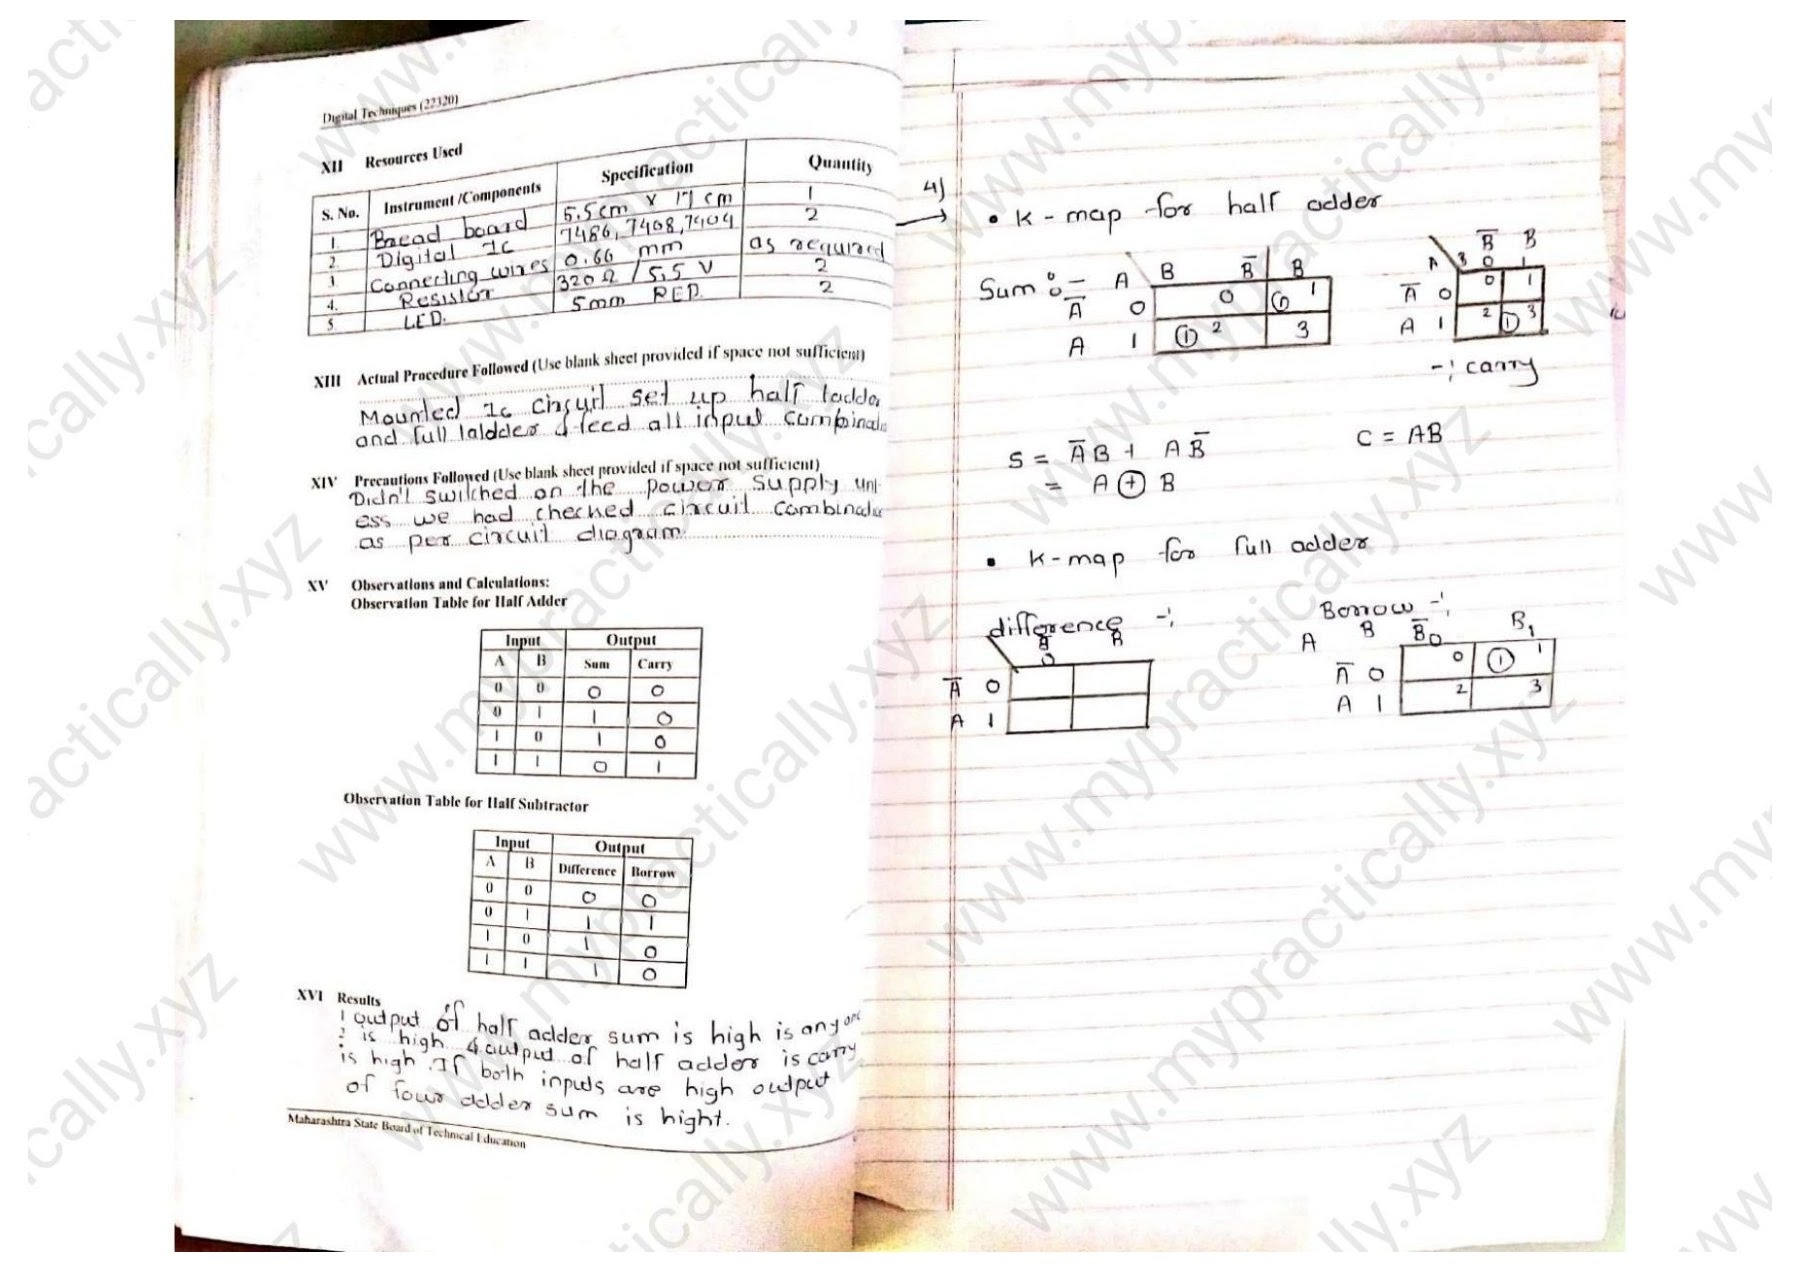 Digital Techniques (22320)
XII Resources Used
S. No. Instrument /Components Specification Quantity
1. Bread board 5.5cm x 17 cm 1
2. Digital Ic 7486, 7408, 7404 2
3 Connecting wires 0.66 mm as required
4. Resistor 320 Ω / 5.5 V 2
5 LED. 5mm RED. 2
XIII Actual Procedure Followed (Use blank sheet provided if space not sufficient)
Mounted Ic circuit set up half ladder
and full laldder & feed all input
XIV Precautions Followed (Use blank sheet provided if space not sufficient)
Didn't switched on the power supply unl-
ess we had checked circuit
as per circuit diagram
XV Observations and Calculations:
Observation Table for Half Adder
Input Output
A B Sum Carry
0 0 0 0
0 1 1 0
1 0 1 0
1 1 0 1
Observation Table for Half Subtractor
Input Output
A B Difference Borrow
0 0 0 0
0 1 1 1
1 0 1 0
1 1 1 0
XVI Results
1 output of half adder sum is high is any one
2 is high & output of half adder is carry
is high. If both inputs are high output
of four adder sum is hight.
Maharashtra State Board of Technical Education
4)
→ • K - map for half adder
Sum :- A B B̅ B
A̅ 0 0 ① 1
A 1 ① 2 3
B̅ B
A B 0 1
A̅ 0 0 1
A 1 2 ① 3
-: carry
S = A̅ B + A B̅
= A ⊕ B
C = AB
• K-map for full adder
difference -:
B̅ B
0
A̅ 0
A 1
Borrow -:
A B B̅0 B1
A̅ 0 0 ① 1
A 1 2 3
www.mypractically.xyz